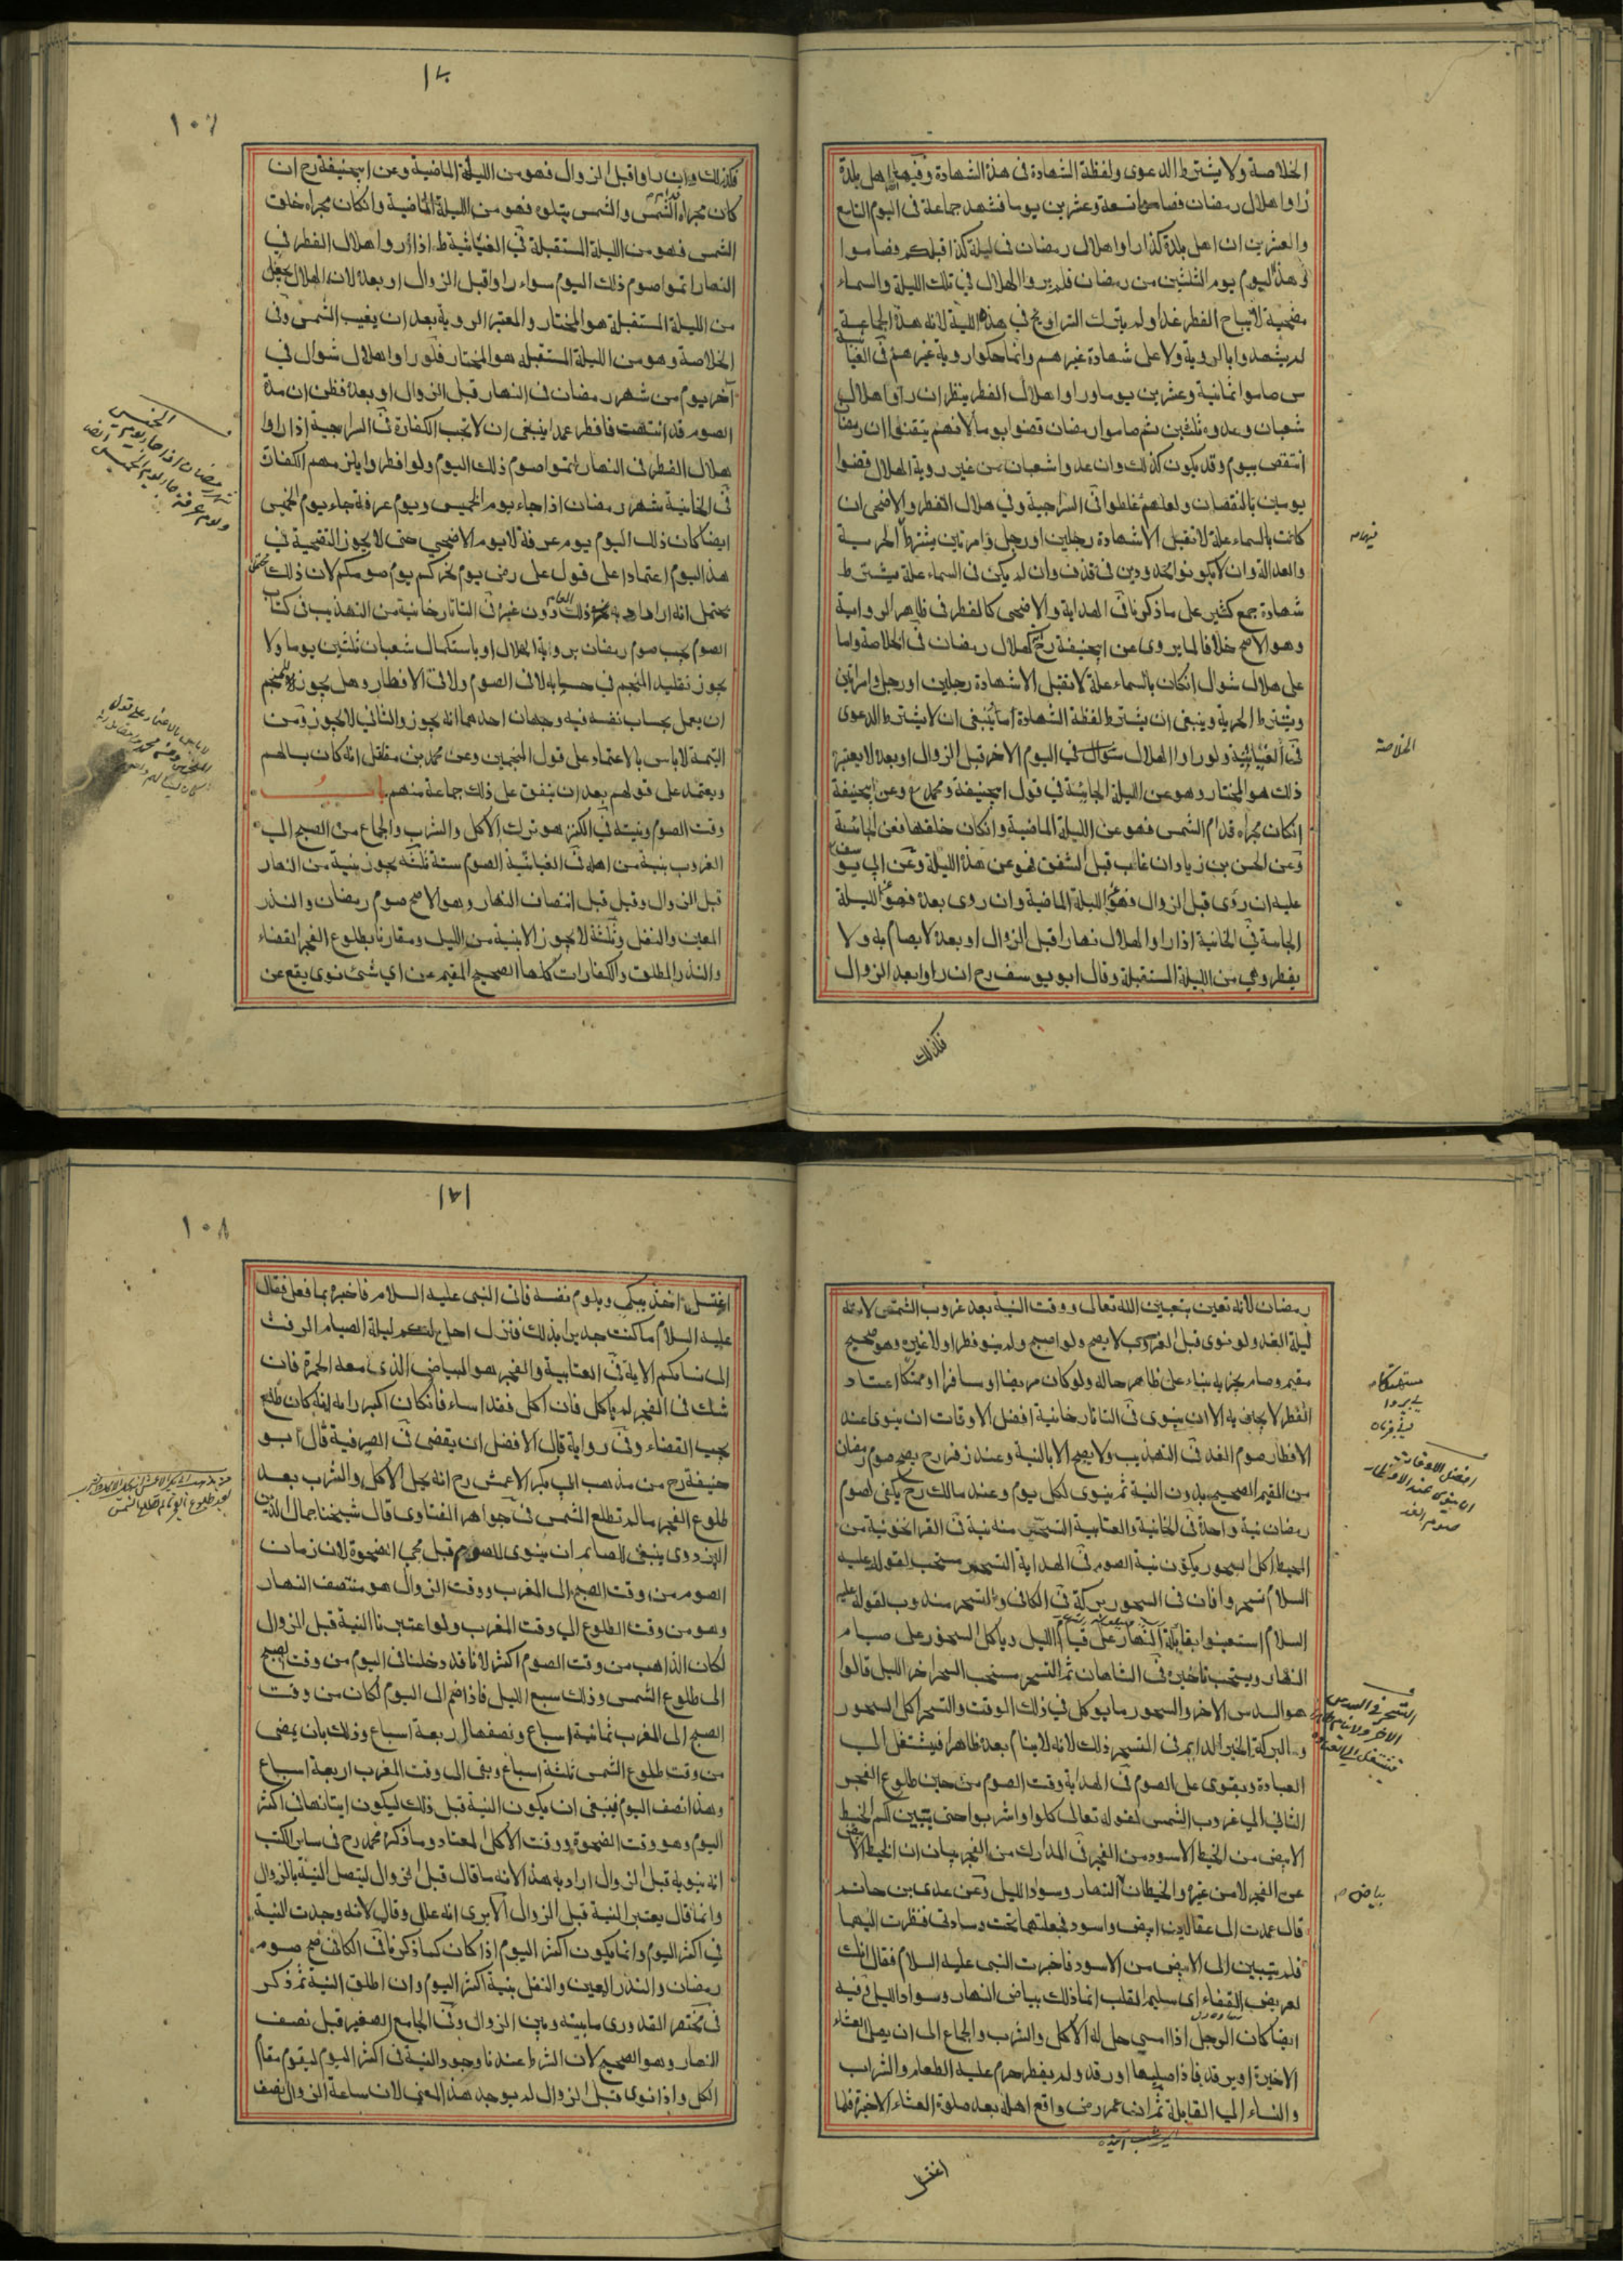 الخلاصة ولا يشترط الدعوى ولفظة الشهادة فى هذه الشهادة وفيها اهل بلدة
راوا هلال رمضان فصاموا تسعة وعشرين يوما فشهد جماعة فى اليوم التاسع
والعشرين ان اهل بلدة كذا راوا هلال رمضان فى ليلة كذا قبلكم فصاموا
وهذا اليوم يوم الثلثين من رمضان فلم يروا الهلال في تلك الليلة والسماء
مضحية لا يباح الفطر غدا ولم يترك التراويح في هذه الليلة لانه هذه الجماعة
لم يشهدوا بالروية ولا على شهادة غيرهم وانما حكوا روية غيرهم فى الغياثية
س صاموا ثمانية وعشرين يوما وراوا هلال الفطر ينظر ان راوا هلال
شعبان وعدوه ثلثين ثم صاموا رمضان قضوا يوما لانهم يتقنوا ان رمضان
انتقص بيوم وقد يكون كذلك وان عدوا شعبان من غير روية الهلال قضوا
يومين بالنقصان ولعلهم غلطوا فى السراجية وفي هلال الفطر والاضحى ان
كانت بالسماء علة لا تقبل الا شهادة رجلين او رجل وامرتين يشترط الحرية
والعدالة وان لا يكونوا محدودين فى قذف وان لم يكن فى السماء علة يشترط
شهادة جمع كثير على ما ذكرنا فى الهداية والاضحى كالفطر فى ظاهر الرواية
وهو الاصح خلافا لما يروى عن ابيحنيفة رح كهلال رمضان فى الخلاصة واما
على هلال شوال انكان بالسماء علة لا تقبل الا شهادة رجلين او رجل وامراتين
ويشترط الحرية وينبغى ان يشترط لفظة الشهادة اما ينبغى ان لا يشترط الدعوى
فى الغياثية ولو راوا الهلال شوال في اليوم الاخر قبل الزوال او بعده لا يعتبر
ذلك هو المختار وهو عن الليلة الجائية في قول ابيحنيفة ومحمد ع وعن ابيحنيفة
انكان مجراه قدام الشمس فهو عن الليلة الماضية وانكان خلفها فعن الجائية
وعن الحسن بن زياد ان غاب قبل الشفق فهو عن هذه الليلة وعن ابي يوسف
عليه ان روى قبل الزوال فهو الليلة الماضية وان روى بعده فهو الليلة
الجائية في الخانية اذا راوا الهلال نهارا قبل الزوال او بعده لا يصام به ولا
يفطر وهي من الليلة المستقبلة وقال ابو يوسف رح ان راوا بعد الزوال
فكذلك
فيهما
الخلاصة
١٠٧
فكذلك وان راوا قبل الزوال فهو من الليلة الماضية وعن ابيحنيفة رح ان
كان مجراه الشمس والشمس يتلوه فهو من الليلة الماضية وانكان مجراه خلف
الشمس فهو من الليلة المستقبلة فى الغياثية ط اذا راوا هلال الفطر في
النهار اتموا صوم ذلك اليوم سواء راوا قبل الزوال او بعده لان الهلال يجعل
من الليلة المستقبلة هو المختار والمعتبر الروية بعد ان يغيب الشمس وفى
الخلاصة وهو من الليلة المستقبلة هو المختار فلو راوا هلال شوال في
آخر يوم من شهر رمضان فى النهار قبل الزوال او بعده فظن ان مدة
الصوم قد انتهت فافطر عمدا ينبغى ان لا تجب الكفارة فى السراجية اذا راوا
هلال الفطر فى النهار اتموا صوم ذلك اليوم ولو افطروا يلزمهم الكفارة
فى الخانية شهر رمضان اذا جاء يوم الخميس ويوم عرفة جاء يوم الخميس
ايضا كان ذلك اليوم يوم عرفة لا يوم الاضحى حتى لا يجوز التضحية في
هذا اليوم اعتمادا على قول على رضى يوم نحركم يوم صومكم لان ذلك
يحتمل انه اراد به ذلك العام دون غيره فى التاتار خانية من التهذيب فى كتاب
الصوم يجب صوم رمضان بروية الهلال او باستكمال شعبان ثلثين يوما ولا
يجوز تقليد المنجم في حسابه لا فى الصوم ولا فى الافطار وهل يجوز للمنجم
ان يعمل بحساب نفسه فيه وجهان احدهما انه يجوز والثاني لا يجوز ومن
اليتمة لا باس بالاعتماد على قول المنجمين وعن محمد بن مقاتل انه كان يسالهم
ويعتمد على قولهم بعد ان يتفق على ذلك جماعة منهم باب
وقت الصوم ونيته فى الكنز هو ترك الاكل والشرب والجماع من الصبح الى
الغروب بنية من اهله فى الغياثية الصوم ستة ثلثه يجوز بنية من النهار
قبل الزوال وقيل قبل انتصاف النهار وهو الاصح صوم رمضان والنذر
المعين والنفل وثلثة لا يجوز الا بنية من الليل ومقارنا بطلوع الفجر القضاء
والنذر المطلق والكفارات كلها الصحيح المقيم عن اي شئ نوى يقع عن
رمضان لانه تعين بتعيين الله تعالى ووقت النية بعد غروب الشمس لانه
ليلة الغد ولو نوى قبل الغروب لا يصح ولو اصبح ولم ينو فطرا ولا غيره وهو صحيح
مقيم وصام يجزيه بناء على ظاهر حاله ولو كان مريضا او مسافرا او متهتكا اعتاد
الفطر لا يجزيه الا ان ينوى فى التاتار خانية افضل الاوقات ان ينوى عند
الافطار صوم الغد فى التهذيب ولا يصح الا بالنية وعند زفر رح يصح صوم رمضان
من المقيم الصحيح بدون النية ثم ينوى لكل يوم وعند مالك رح يكفى لصوم
رمضان نية واحدة فى الخانية والعتابية التسحر منه نية فى القراخونية من
المحيط اكل السحور يكون نية الصوم فى الهداية التسحر مستحب لقوله عليه
السلام تسحروا فان فى السحور بركة فى الكافى والتسحر مندوب لقوله عليه
السلام استعينوا بقائلة النهار على قيام الليل وباكل السحور على صيام
النهار ويستحب تاخيره فى الشاهان ثم التسحر مستحب السحر اخر الليل قالوا
هو السدس الاخر والسحور ما يوكل في ذلك الوقت والتسحر اكل السحور
والبركة الخير الدايم فى التسحر ذلك لانه لا ينام بعده ظاهرا فيشتغل الى
العبادة ويقوى على الصوم فى الهداية وقت الصوم من حين طلوع الفجر
الثانى الي غروب الشمس لقوله تعالى كلوا واشربوا حتى يتبين لكم الخيط
الابيض من الخيط الاسود من الفجر فى المدارك من الفجر بيان ان الخيط الابيض
من الفجر لا من غيره والخيطان النهار وسواد الليل وعن عدى بن حاتم
قال عمدت الى عقالين ابيض واسود فجعلتهما تحت وسادتى فنظرت اليهما
فلم يتبين الى الابيض من الاسود فاخبرت النبى عليه السلام فقال انك
لعريض القفاء اى سليم القلب انما ذلك بياض النهار وسواد الليل وفيه
ايضا كان الرجل اذا امسى حل له الاكل والشرب والجماع الى ان يصلى العشاء
الاخيرة او يرقد فاذا صليها او رقد ولم يفطر حرم عليه الطعام والشراب
والنساء الى القابلة ثم ان عمر رضى واقع اهله بعد صلوة العشاء الاخيرة فلما
اغتسل
افضل الاوقات
ان ينوى عند الافطار
صوم الغد
التسحر فى السدس
بياض
١٠٨
اغتسل اخذ يبكى ويلوم نفسه فاتى النبى عليه السلام فاخبره بما فعل فقال
عليه السلام ما كنت جديرا بذلك فنزل احل لكم ليلة الصيام الرفث
الى نسائكم الاية فى العتابية والفجر هو البياض الذى معه الحمرة فان
شك فى الفجر لم ياكل فان اكل فقد اساء فانكان اكبر رايه انه كان طلع
يجب القضاء وفى رواية قال الافضل ان يقضى فى الصرفية قال ابو
حنيفة رح من مذهب ابي بكر الاعمش رح انه يحل الاكل والشرب بعد
طلوع الفجر ما لم تطلع الشمس فى جواهر الفتاوى قال شيخنا جمال الدين
البزدوى ينبغى للصائم ان ينوى للصوم قبل مجى الضحوة لان زمان
الصوم من وقت الصبح الى المغرب ووقت الزوال هو منتصف النهار
وهو من وقت الطلوع الى وقت المغرب ولو اعتبرنا النية قبل الزوال
لكان الذاهب من وقت الصوم اكثر لانا قد دخلنا فى اليوم من وقت الصبح
الى طلوع الشمس وذلك سبع الليل فاذا ضم الى اليوم لكان من وقت
الصبح الى المغرب ثمانية اسباع ونصفها اربعة اسباع وذلك بان يمضى
من وقت طلوع الشمس ثلثة اسباع وبقى الى وقت المغرب اربعة اسباع
وهذا نصف اليوم فينبغى ان يكون النية قبل ذلك ليكون ايتانها فى اكثر
اليوم وهو وقت الضحوة ووقت الاكل المعتاد وما ذكره محمد رح فى ساير الكتب
انه ينويه قبل الزوال اراد به هذا لانه ما قال قبل الزوال ليتصل النية بالزوال
وانما قال يعتبر النية قبل الزوال الا يرى انه علل وقال لانه وجدت النية
في اكثر اليوم وانما يكون اكثر اليوم اذا كان كما ذكرنا فى الكافى صح صوم
رمضان والنذر المعين والنفل بنية اكثر اليوم وان اطلق النية ثم ذكر
فى مختصر القدورى ما بينه وبين الزوال وفى الجامع الصغير قبل نصف
النهار وهو الصحيح لان الشرط عندنا وجود النية فى اكثر اليوم ليقوم مقام
الكل واذا نوى قبل الزوال لم يوجد هذا المعنى لان ساعة الزوال نصف